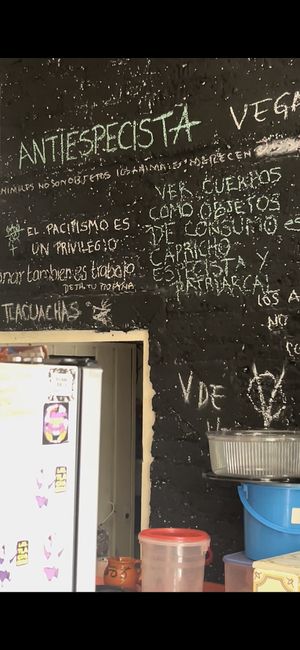 ANTIESPECISTA
VEGA
NIMALES NO SON OBJETOS LOS ANIMALES MERECEN
VER CUERPOS
COMO OBJETOS
DE CONSUMO ES
CAPRICHO
ESPECISTA Y
PATRIARCAL
EL PACIFISMO ES
UN PRIVILEGIO
nar tambien es trabajo
TLACUACHAS
LOS A
NO
CO
V DE V